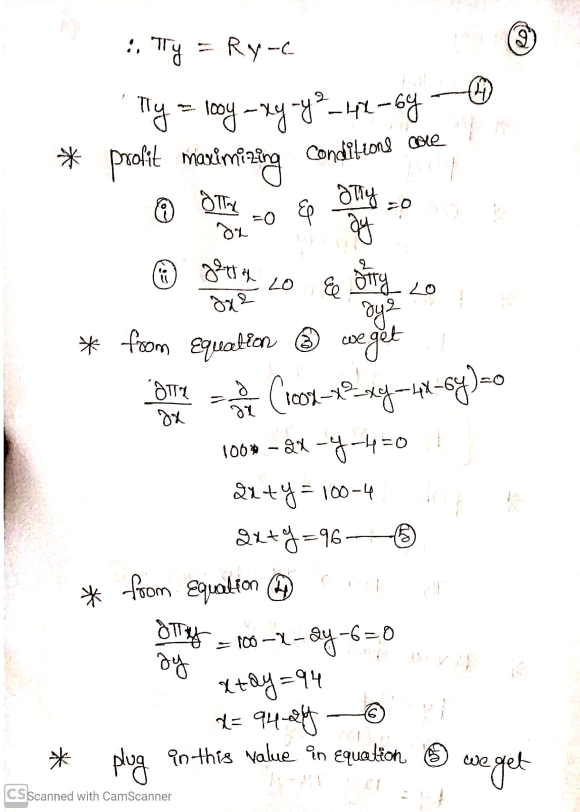 ②
∴ πy = Ry-c
πy = 100y - xy - y² - 4x - 6y — ④
* profit maximizing conditions are
ⓘ ∂πx/∂x = 0 & ∂πy/∂y = 0
ⓘⓘ ∂²πx/∂x² < 0 & ∂²πy/∂y² < 0
* from Equation ③ we get
∂πx/∂x = ∂/∂x (100x - x² - xy - 4x - 6y) = 0
100 - 2x - y - 4 = 0
2x + y = 100 - 4
2x + y = 96 — ⑤
* from Equation ④
∂πy/∂y = 100 - x - 2y - 6 = 0
x + 2y = 94
x = 94 - 2y — ⑥
* plug in this value in equation ⑤ we get
CS Scanned with CamScanner